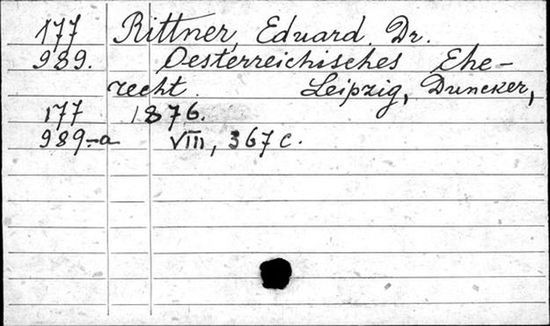 177 Rittner, Eduard Dr.
989. Oesterreichisches Ehe-
recht. Leipzig, Duncker,
177 1876.
989-a VIII, 367 c.